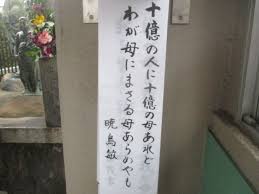 十億の人に十億の母あれど
わが母にまさる母あらめやも
暁烏敏